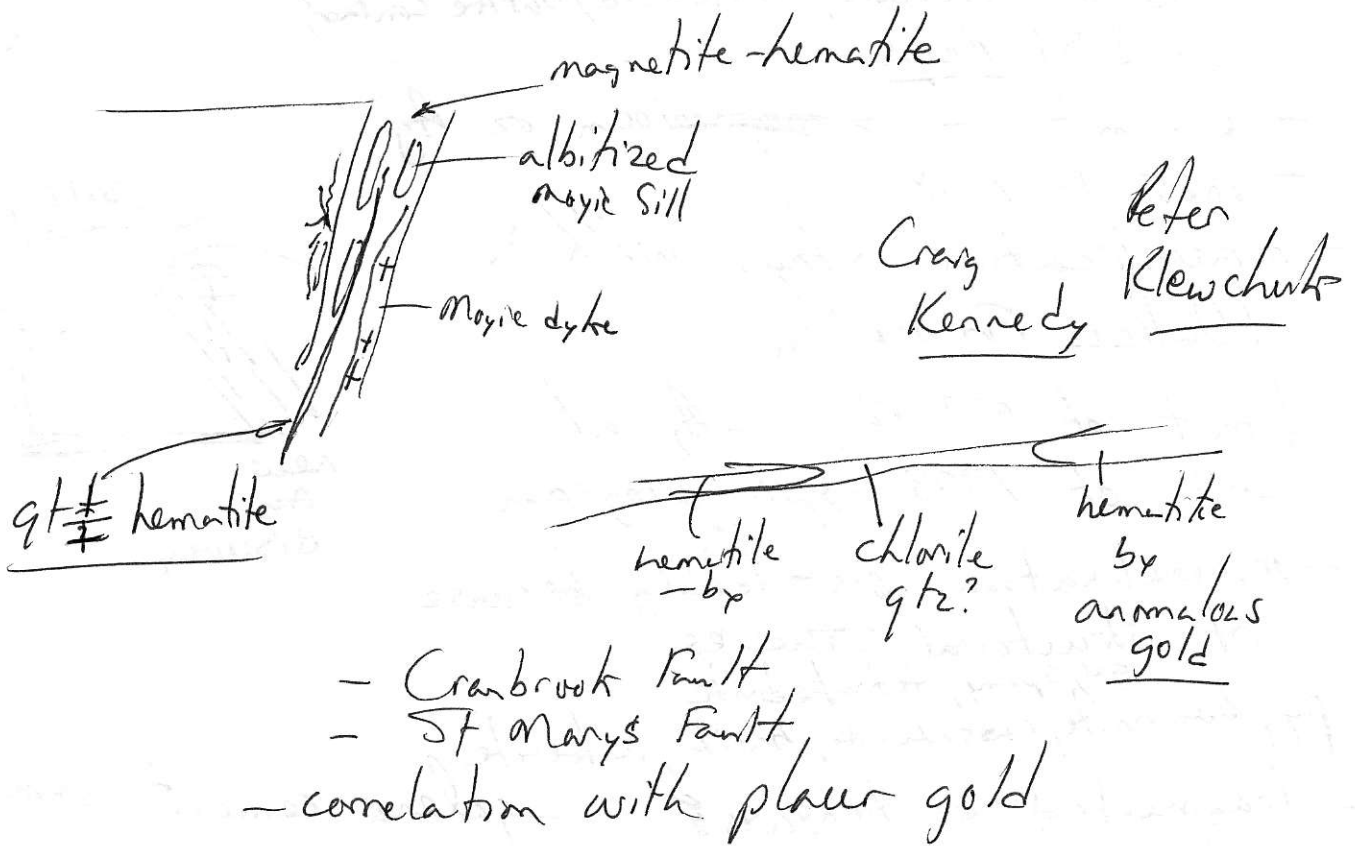 magnetite-hematite
albitized
moyie Sill
Moyie dyke
Craig
Kennedy
Peter
Klewchuk
qtz ± hematite
hematite
- bx
chlorite
qtz?
hematite
bx
anomalous
gold
- Cranbrook Fault
- St Marys Fault
- correlation with placer gold